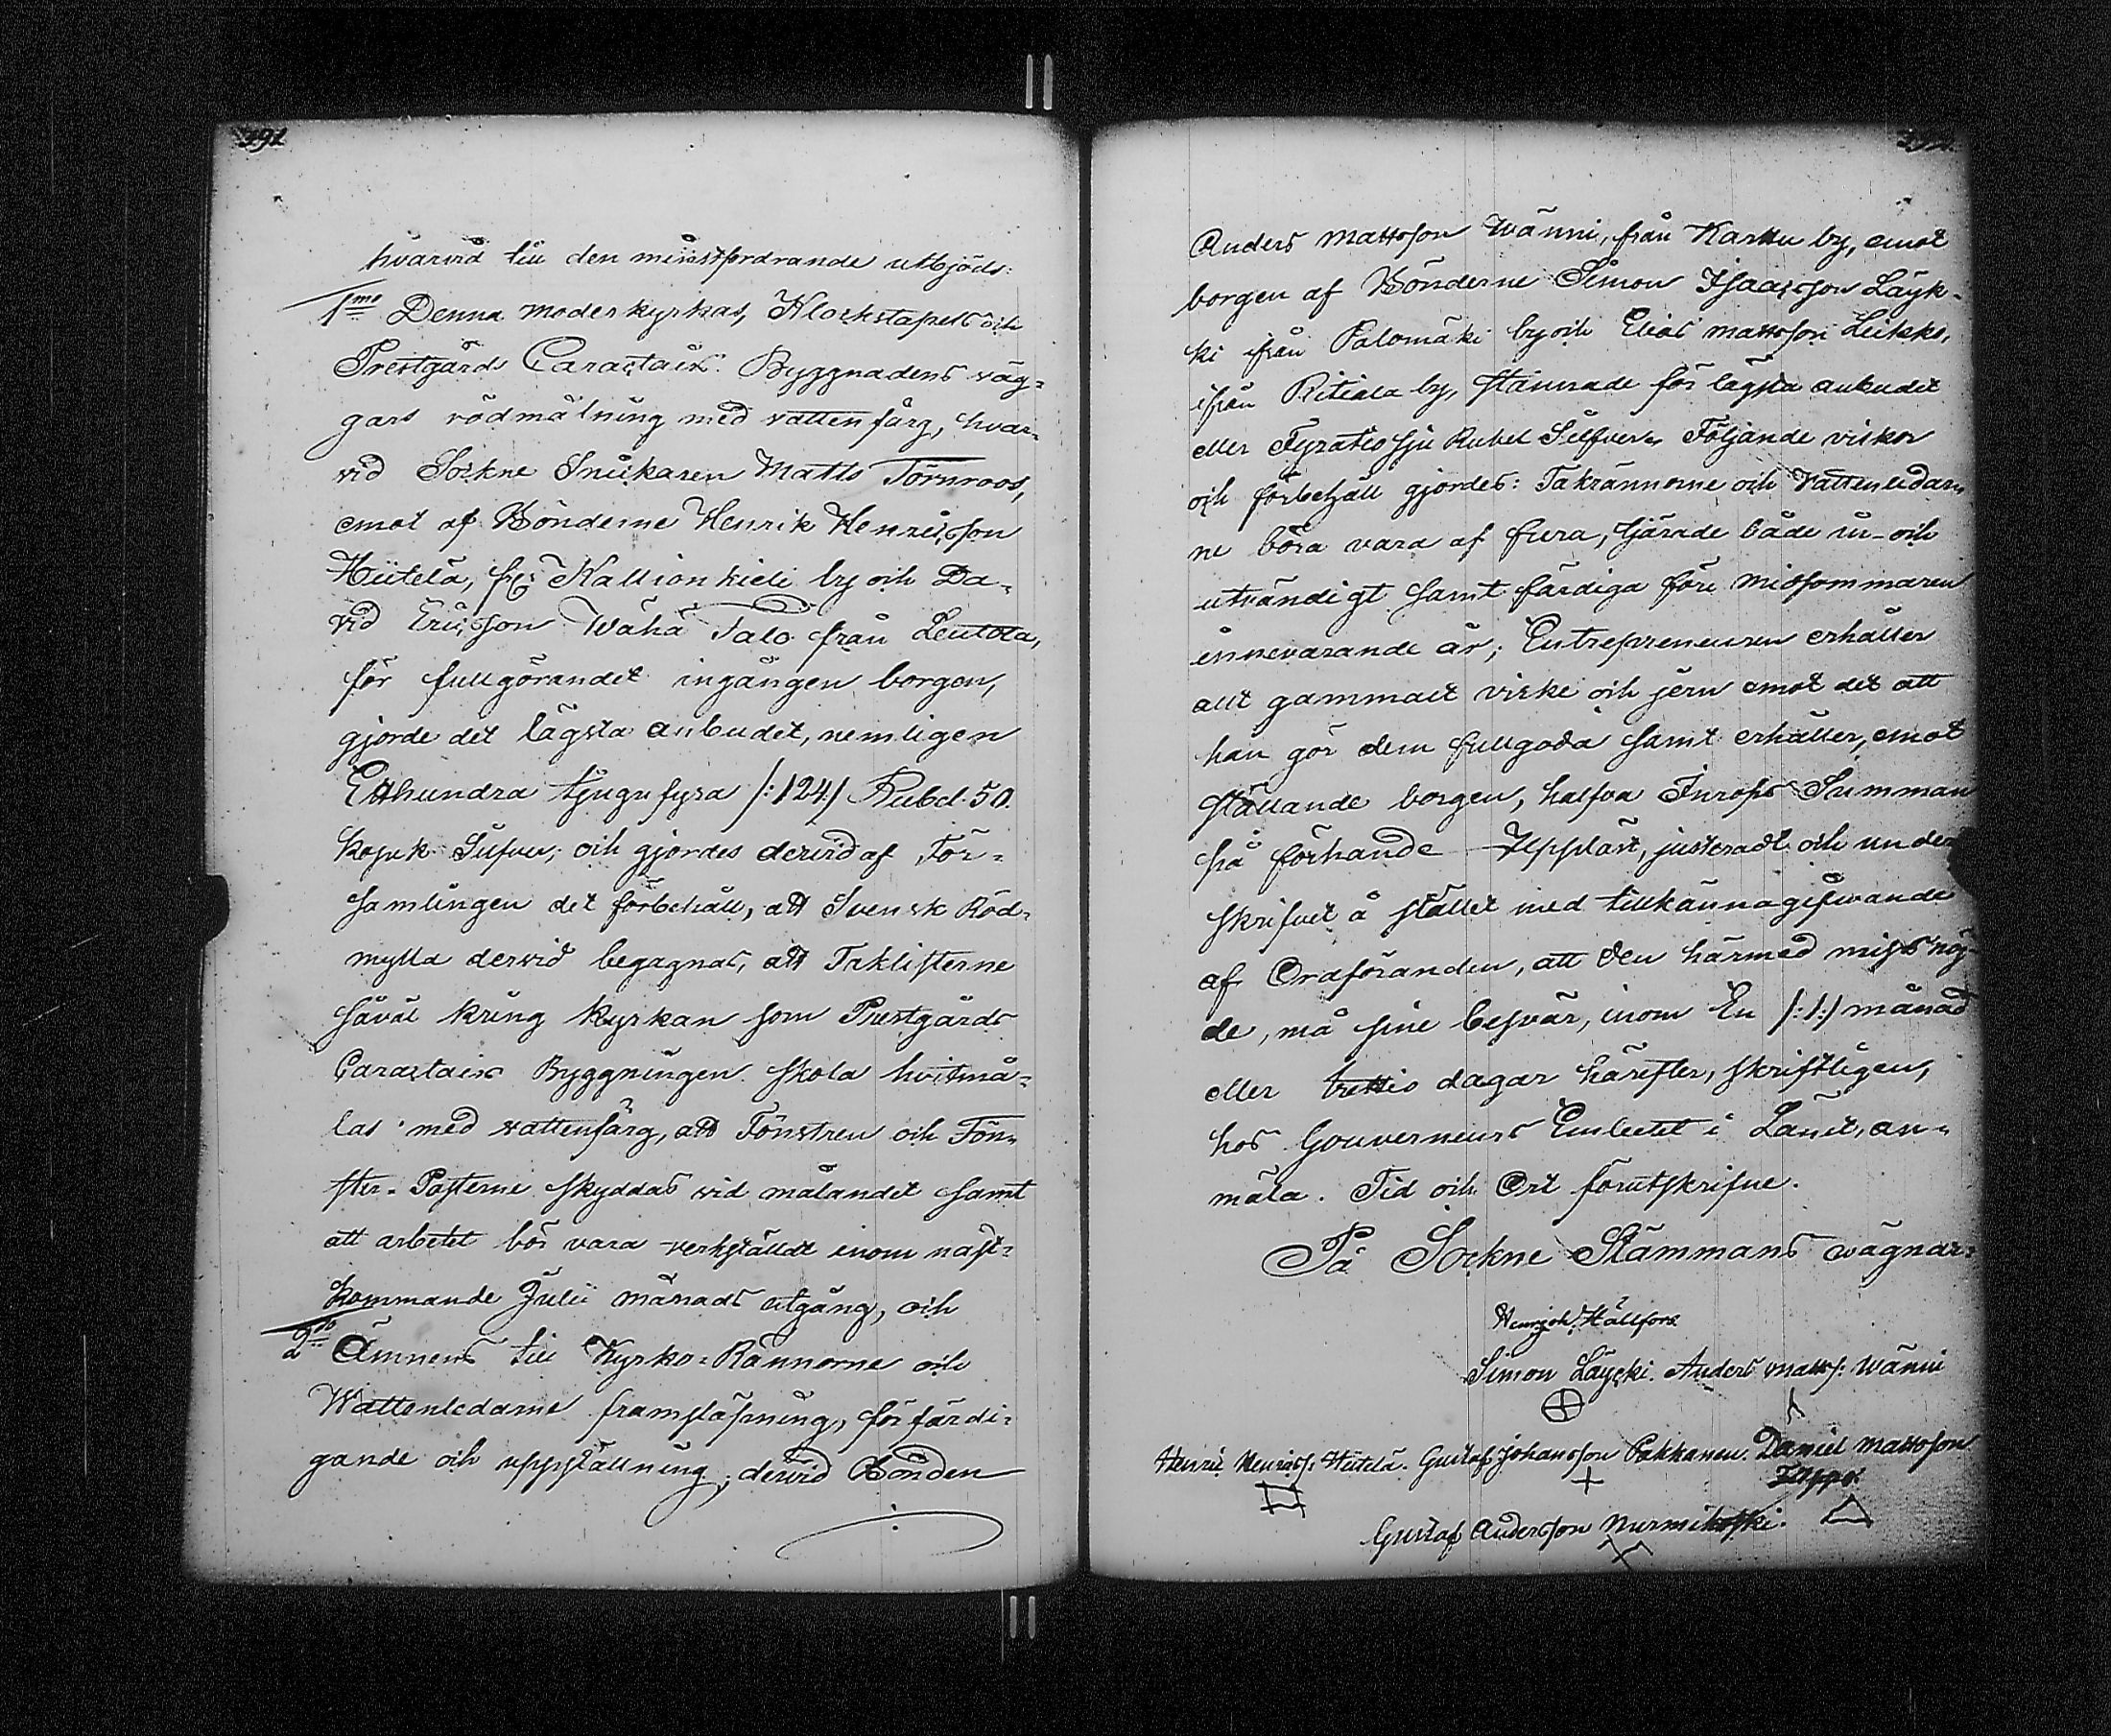 391
hvarvid till den minstfordrande utbjöds:
1mo Denna moderkyrkas, Klockstapels och
Prestgårds Caractairs Byggnadens väg-
gars rödmålning med vattenfärg, hvar-
vid Sockne Snickaren Matts Törnroos,
emot af Bönderne Henrik Henricsson
Hiitelä, frs Kallionkieli by och Da-
vid Ericsson Wähä Talo från Leutola,
för fullgörandet ingången borgen,
gjorde det lägsta anbudet, nemligen
Etthundra tjugufyra /:124:/ Rubel 50.
kopek Silfver; och gjordes dervid af För-
samlingen det förbehåll, att Svensk Röd-
mylla dervid begagnas, att Taklisterne
såväl kring kyrkan som Prestgårds
Caractairs Byggningen skola hvitmå-
las med vattenfärg, att Fönstren och Fön-
ster-Posterne skyddas vid målandet samt
att arbetet bör vara verkställdt inom näst-
kommande Julii månads utgång, och
2do Ämnens till Kyrko-Rännorne och
Wattenledarne framsläpning, förfärdi-
gande och uppställning; dervid Bonden
Anders Mattsson Wänni, från Karttu by, emot
borgen af Bönderne Simon Isaacsson Läyk-
ki ifrån Palomäki by och Elias Mattsson Leikko,
ifrån Ritiala by, stannade för lägsta anbudet
eller Fyratio sju Rubel Silfver. Följande vilkor
och förbehåll gjordes: Takrännorne och Vattenledar-
ne böra vara af fura, tjärade både in- och
utvändigt samt färdiga före midsommaren
innevarande år; Entrepreneuren erhåller
allt gammalt virke och jern emot det att
han gör dem fullgoda samt erhåller, emot
ställande borgen, halfva Inrops Summan
på förhand Uppläst, justeradt och under
skrifvet å stället med tillkännagifwande
af Ordföranden, att den härmed missnög-
de, må sine besvär, inom En /:1:/ månad
eller trettio dagar härefter, skriftligen,
hos Gouverneurs Embetet i Länet, an-
mäla. Tid och Ort förutskrifne.
På Sockne Stämmans wägnar:
Henrich Hällfors
Simon Läycki. Anders Matts: Wänni
Henric Henricss: Hiitelä. Gustaf Johansson Pakkanen. Daniel Mattsson
Ilppo.
Gustaf Andersson Nurmikoski.